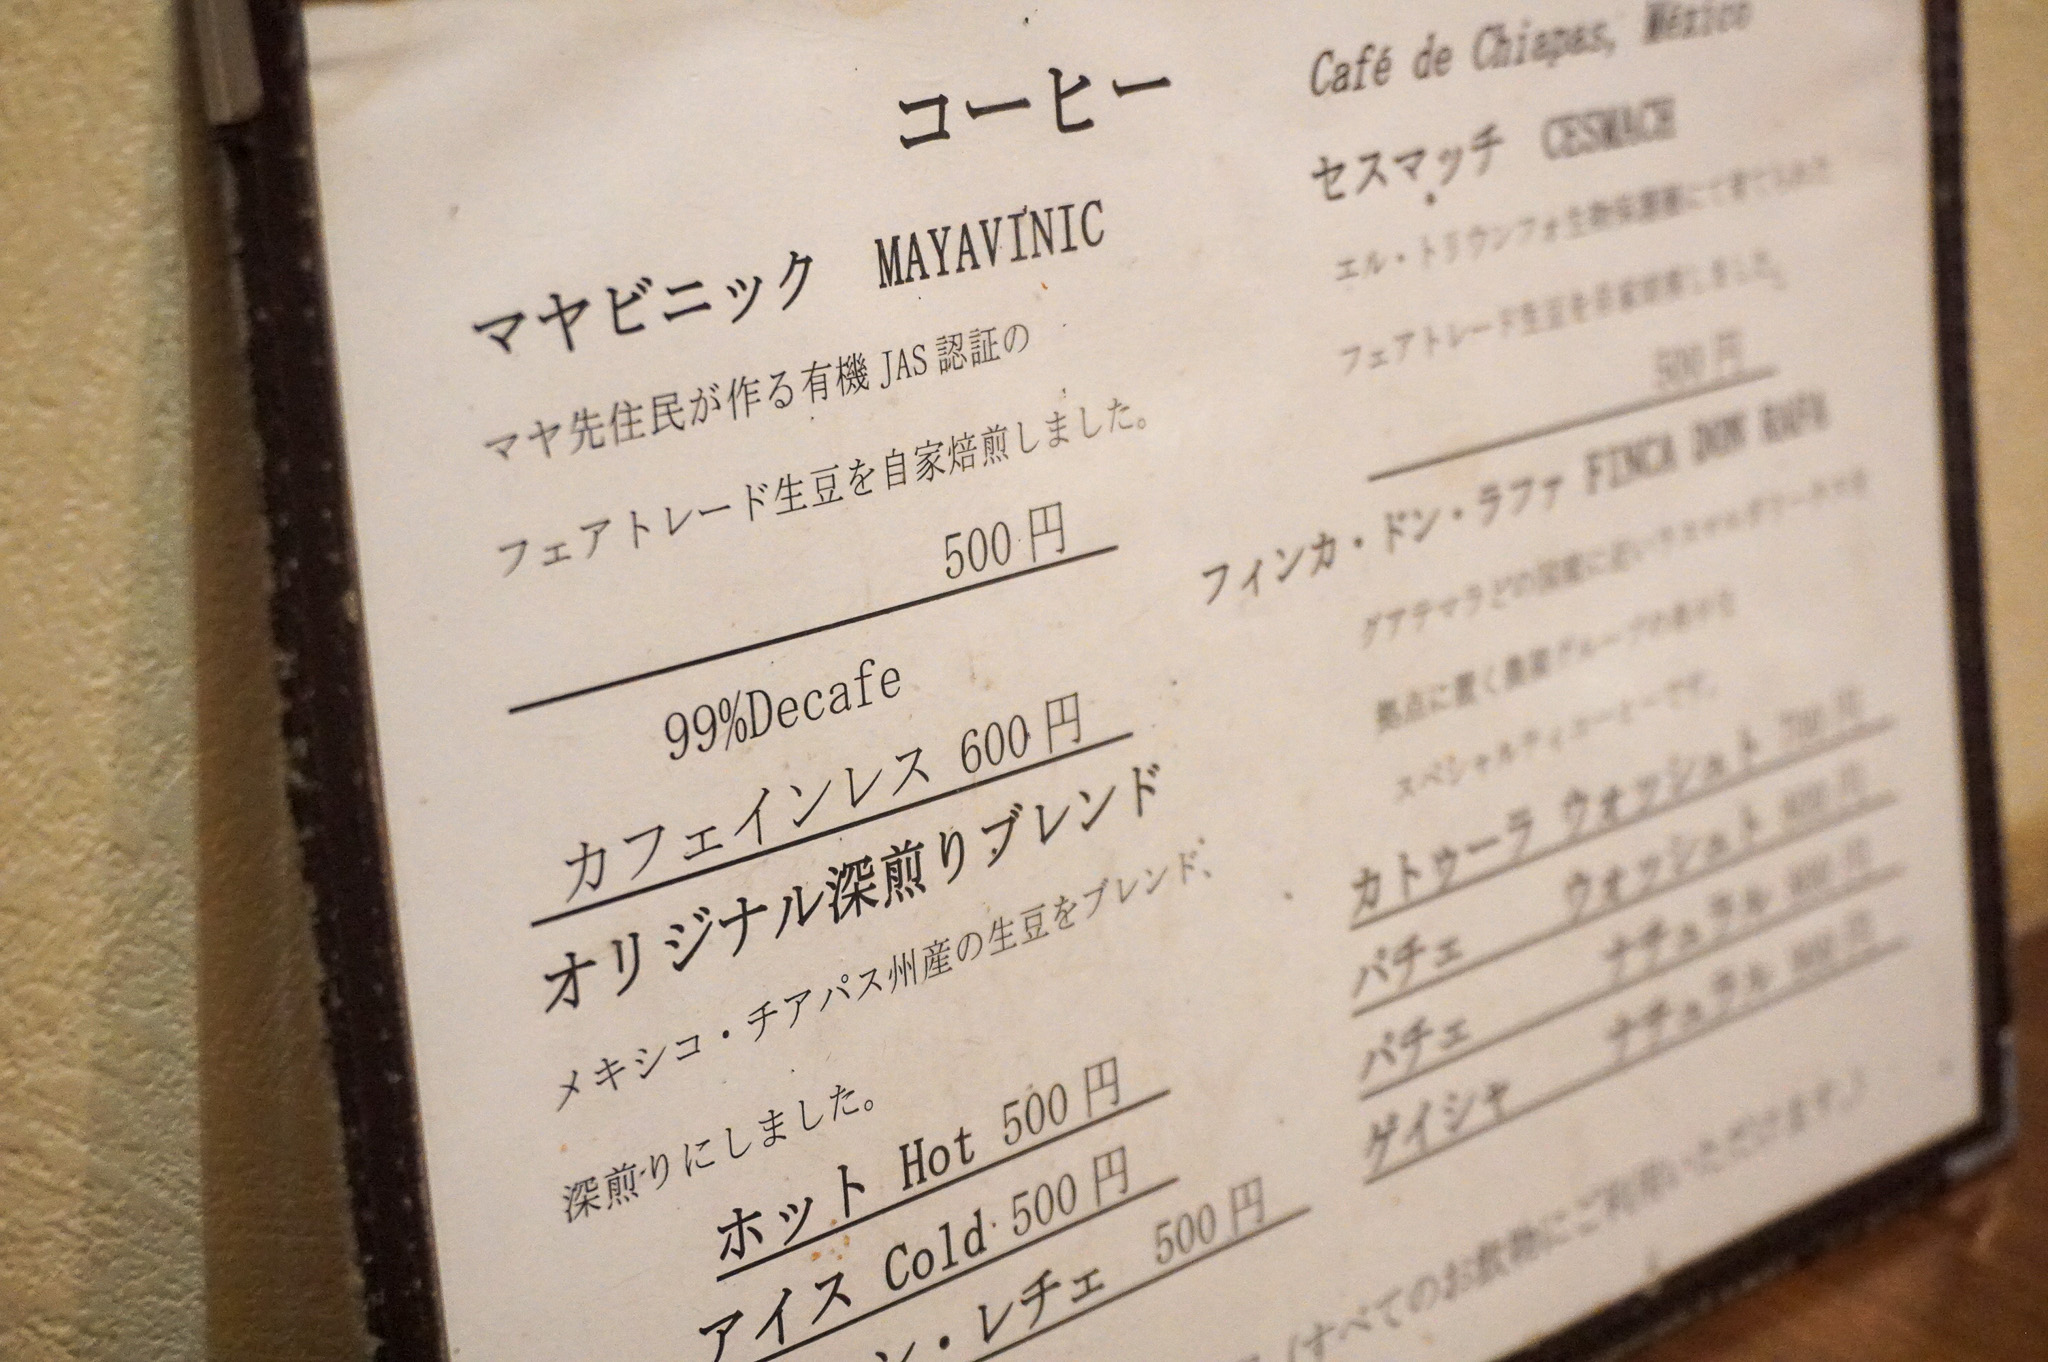 コーヒー
マヤビニック MAYAVINIC
マヤ先住民が作る有機 JAS 認証の
フェアトレード生豆を自家焙煎しました。
500 円
99%Decafe
カフェインレス 600 円
オリジナル深煎りブレンド
メキシコ・チアパス州産の生豆をブレンド、
深煎りにしました。
ホット Hot 500 円
アイス Cold 500 円
ン・レチェ 500 円
Café de Chiapas, México
セスマッチ CESMACH
エル・トリウンフォ生物保護圏にて育てられた
フェアトレード生豆を自家焙煎しました。
500 円
フィンカ・ドン・ラファ FINCA DON RAFA
グアテマラとの国境に近い
拠点に置く農園グループの
スペシャルティコーヒーです。
カトゥーラ ウォッシュト 700 円
パチェ ウォッシュト 800 円
パチェ ナチュラル 900 円
ゲイシャ ナチュラル 円
(すべてのお飲物にご利用いただけます。)